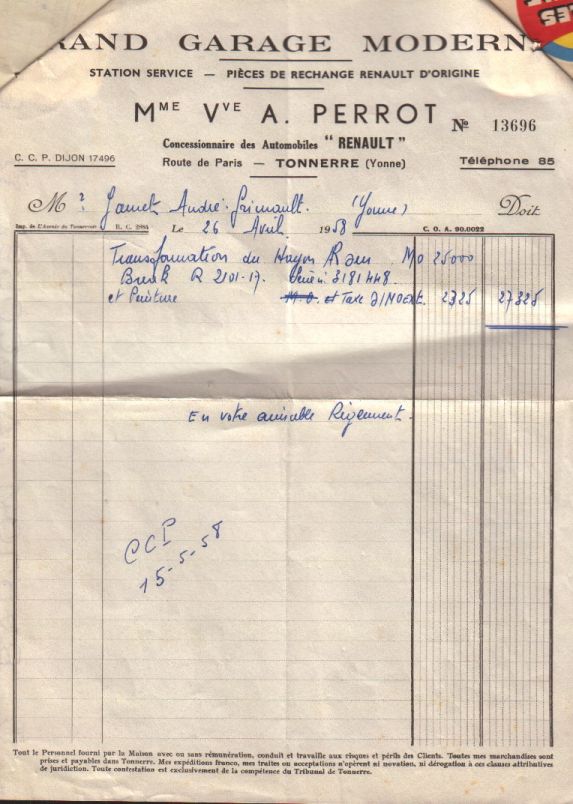 RAND GARAGE MODERN
STATION SERVICE — PIÈCES DE RECHANGE RENAULT D'ORIGINE
MME VVE A. PERROT
No 13696
Concessionnaire des Automobiles " RENAULT "
C. C. P. DIJON 17496
Route de Paris — TONNERRE (Yonne)
Téléphone 85
M r Jamet André. Grimault. (Yonne) Doit
Imp. de L'Avenir du Tonnerrois R. C. 2884 Le 26 Avril 1958 C. O. A. 90.0022
Transformation du Hayon AR M O 25000
Break R 2101-17. Série n: 3181448
et Peinture M.O. et Taxe S/MO 2325 27325
En votre aimable Règlement.
CCP
15-5-58
Tout le Personnel fourni par la Maison avec ou sans rémunération, conduit et travaille aux risques et périls des Clients. Toutes mes marchandises sont
prises et payables dans Tonnerre. Mes expéditions franco, mes traites ou acceptations n'opèrent ni novation, ni dérogation à ces clauses attributives
de juridiction. Toute contestation est exclusivement de la compétence du Tribunal de Tonnerre.